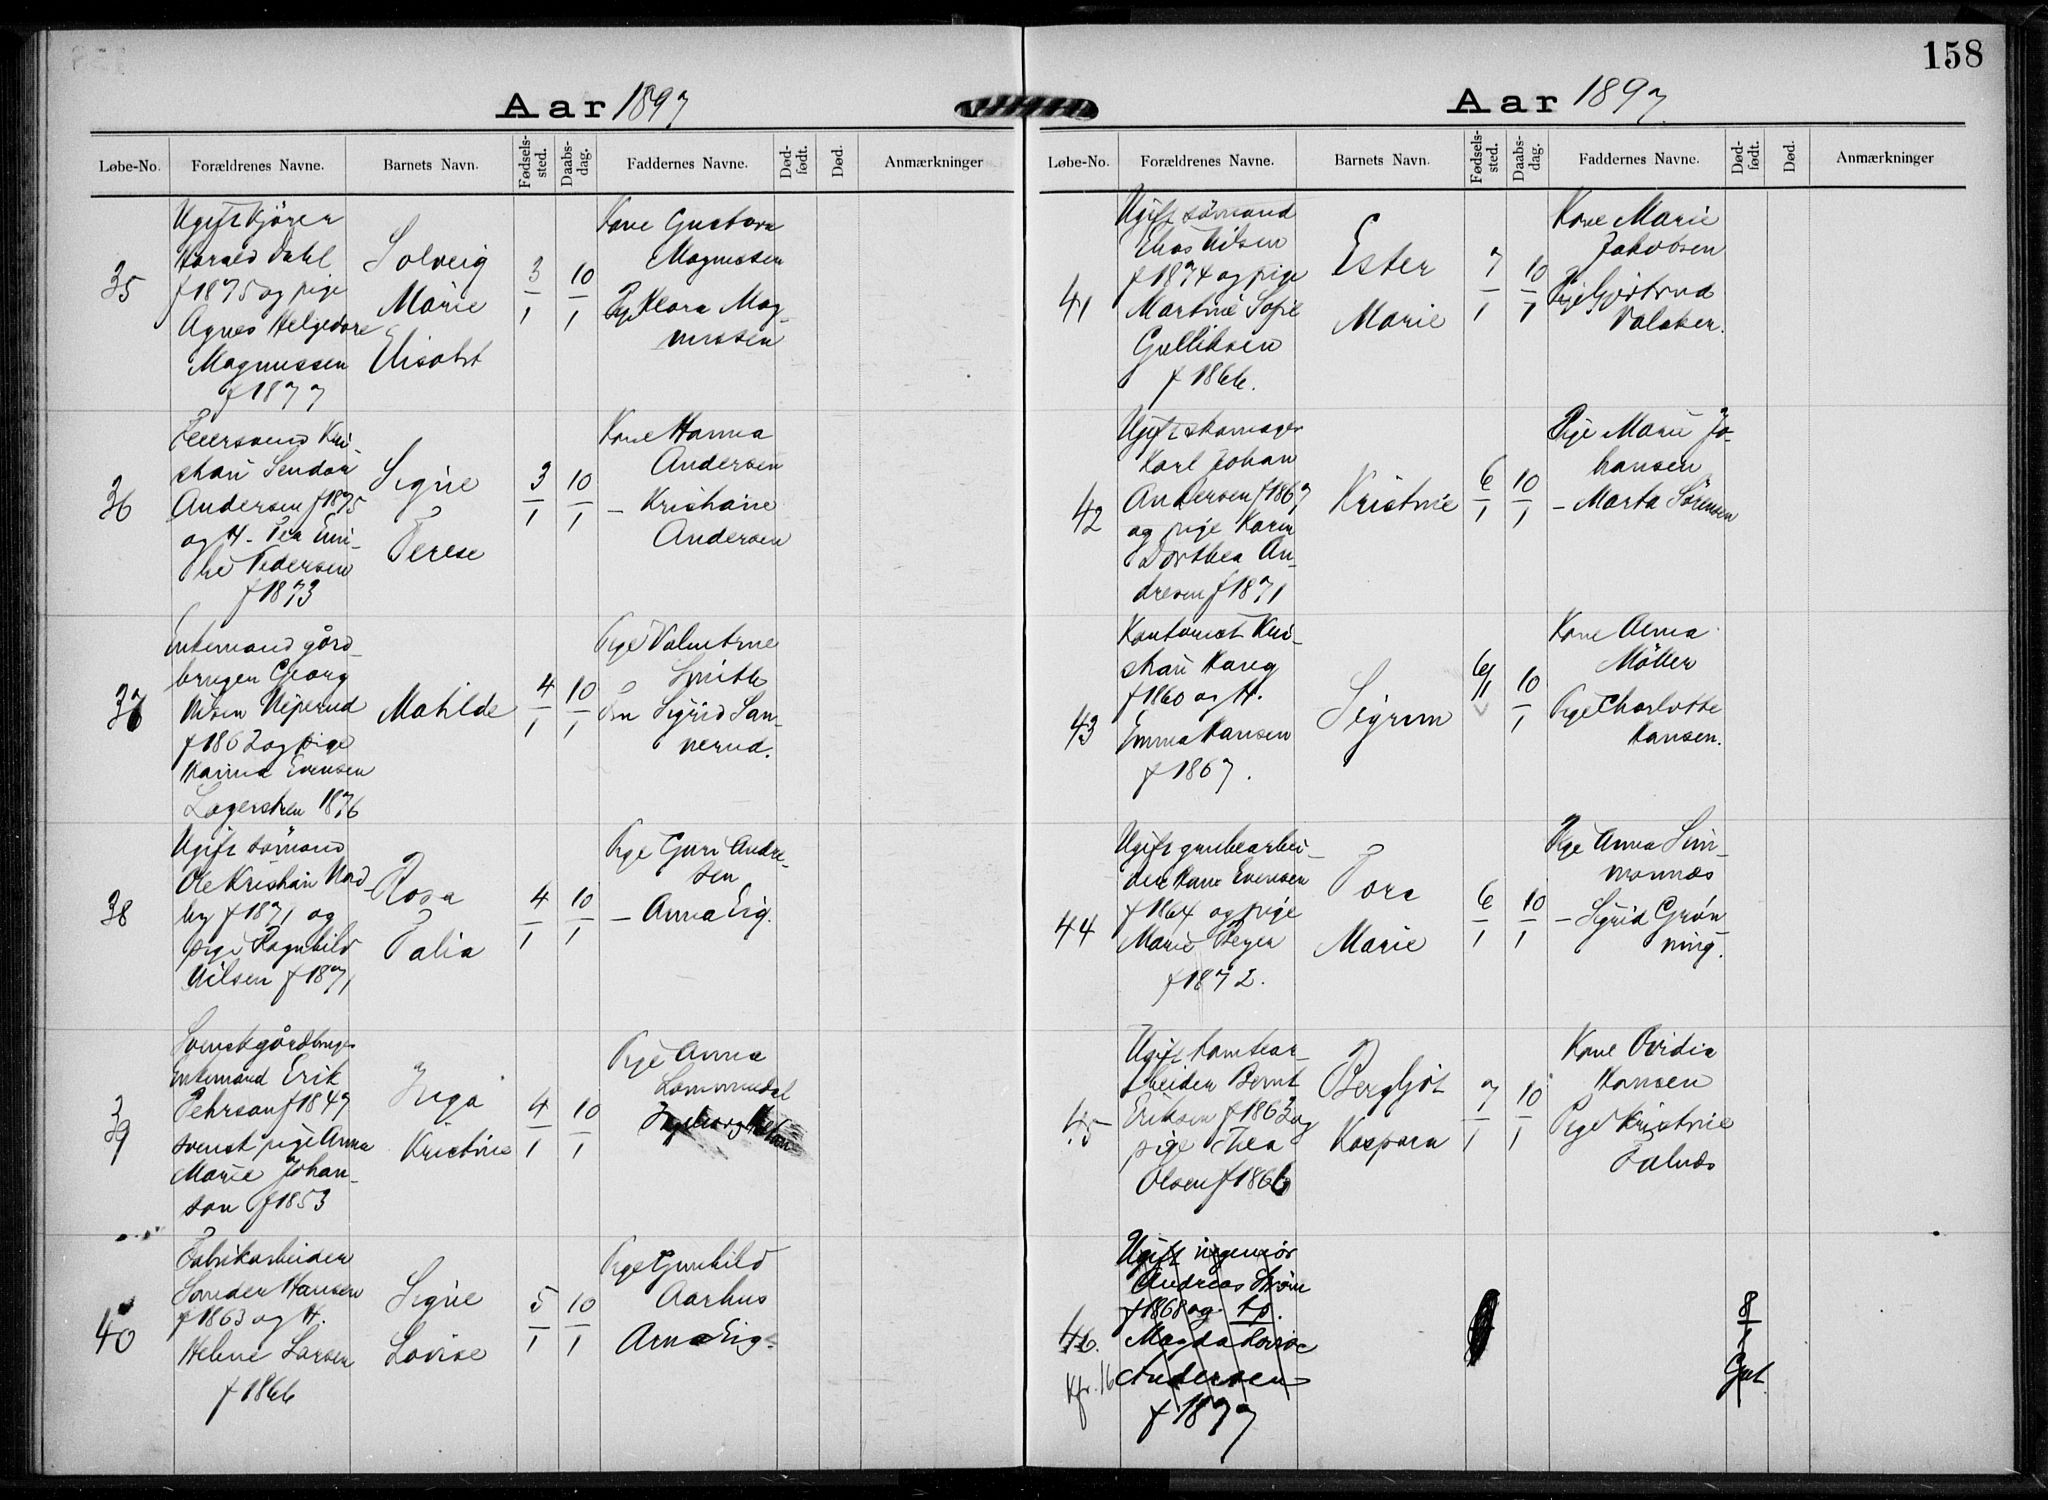 Aar 1897
Løbe-No. Forældrenes Navne. Barnets Navn. Fødsels-sted. Daabs-dag. Faddernes Navne. Død-født. Død. Anmærkninger
35
Ugift kjører
Harald Dahl
f 1875 og pige
Agnes Helgedore
Magnussen
f 1877
Solveig
Marie
Elisabet
3/1
10/1
Kone Gustava
Magnussen
Pige Klara Mag-
nussen
36
Feiersvend Kri-
stian Sendor
Andersen f 1875
og H. Tea Emi-
lie Pedersen
f 1873
Signe
Terese
3/1
10/1
Kone Hanna
Andersen
– Kristiane
Andersen
37
Enkemand gård-
brugen Georg
Nilsen Neperud
f 1862 og pige
Hanna Evensen
1876
Matilde
4/1
10/1
Pige Valentine
Smith
Sigrid San-
nerud.
38
Ugift sømand
Ole Kristian Nord-
by f 1871 og
pige Ragnhild
Nilsen f 1871
Rosa
Talia
4/1
10/1
Pige Guri Andre-
sen
– Anna Eig.
39
Svensk gårdbruger
enkemand Erik
Pehrson f 1847
svensk pige Anna
Marie Johan-
son f 1853
Inga
Kristine
4/1
10/1
Pige Anna
Lommedal
Ingeborg
40
Fabrikarbeider
Sander Hansen
f 1863 og H.
Helene Larsen
f 1866
Signe
Lovise
5/1
10/1
Pige Gunhild
Aarhus
Arne Eig.
158
Aar 1897.
Løbe-No. Forældrenes Navne. Barnets Navn. Fødsels-sted. Daabs-dag. Faddernes Navne. Død-født. Død. Anmærkninger
41
Ugift sømand
Elias Nilsen
f 1874 og pige
Martine Sofie
Gulliksen
f 1866.
Ester
Marie
7/1
10/1
Kone Marie
Jakobsen
Pige Gjertrud
Valaker.
42
Ugift skomager
Karl Johan
Andersen f 1867
og pige Karen
Dorthea An-
dresen f 1871
Kristine
6/1
10/1
Pige Marie Jo-
hansen
– Marta Sørensen
43
Kontorist Kri-
stian Haug
f 1860 og H.
Emma Hansen
f 1867.
Sigrun
6/1
10/1
Kone Alma
Møller
Pige Charlotte
Hansen.
44
Ugift grubearbei-
der Hans Evensen
f 1864 og pige
Marie Beyer
f 1872.
Tora
Marie
6/1
10/1
Pige Anna Sim-
monnæs
– Sigrid Grøn-
ning.
45
Ugift
arbeider Bernt
Eriksen f 1863 og
pige Thea
Olsen f 1866
Bergljot
Kaspara
7/1
10/1
Kone Ovidia
Hansen
Pige Kristine
Falnæs
46.
Kfr. 16
Ugift ingeniør
Andreas Strøm
f 1868 og tp.
Magda Lovise
Andersen
f 1877
8/1
Gut.